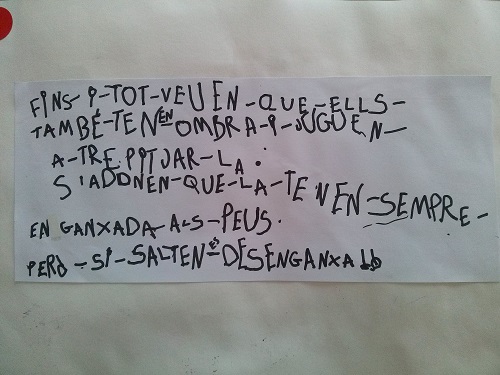 FINS-I-TOT-VEUEN-QUE-ELLS-
TAMBÉ-TENEN-OMBRA-I-JUGUEN-
A-TREPITJAR-LA.
S'ADONEN-QUE-LA-TENEN-SEMPRE-
ENGANXADA-ALS-PEUS.
PERO-SI-SALTEN-ES-DESENGANXA